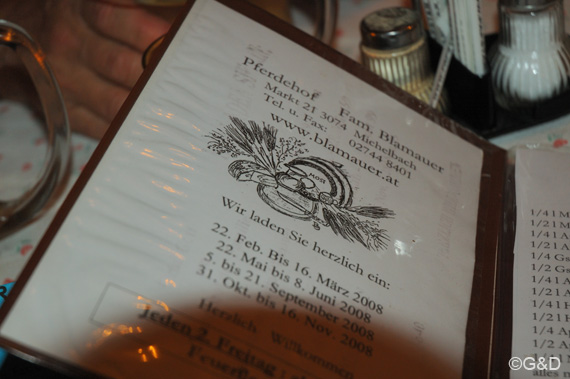 Pferdehof Fam. Blamauer
Markt 21 3074 Michelbach
Tel. u. Fax: 02744 8401
www.blamauer.at
MOST
Wir laden Sie herzlich ein:
22. Feb. Bis 16. März 2008
22. Mai bis 8. Juni 2008
5. bis 21. September 2008
31. Okt. bis 16. Nov. 2008
Herzlich Willkommen
Jeden 2. Freitag
1/4l M
1/2l M
1/4l A
1/2l A
1/4 Gs
1/2 G
1/4l A
1/2l A
1/4l H
1/2l H
1/4 A
1/2 A
alles
©G&D